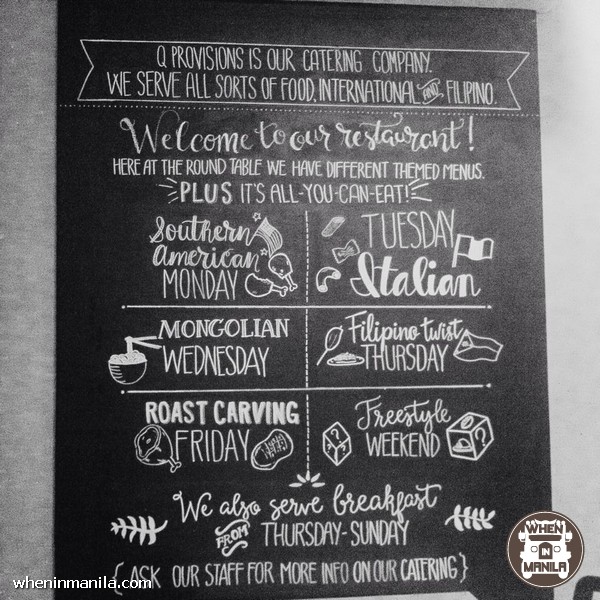 Q PROVISIONS IS OUR CATERING COMPANY.
WE SERVE ALL SORTS OF FOOD, INTERNATIONAL AND FILIPINO.
Welcome to our restaurant!
HERE AT THE ROUND TABLE WE HAVE DIFFERENT THEMED MENUS.
PLUS IT'S ALL-YOU-CAN-EAT!
Southern
American
MONDAY
TUESDAY
Italian
MONGOLIAN
WEDNESDAY
Filipino twist
THURSDAY
ROAST CARVING
FRIDAY
Freestyle
WEEKEND
? ? ?
We also serve breakfast
FROM THURSDAY-SUNDAY
{ASK OUR STAFF FOR MORE INFO ON OUR CATERING}
WHEN
IN
MANILA
wheninmanila.com